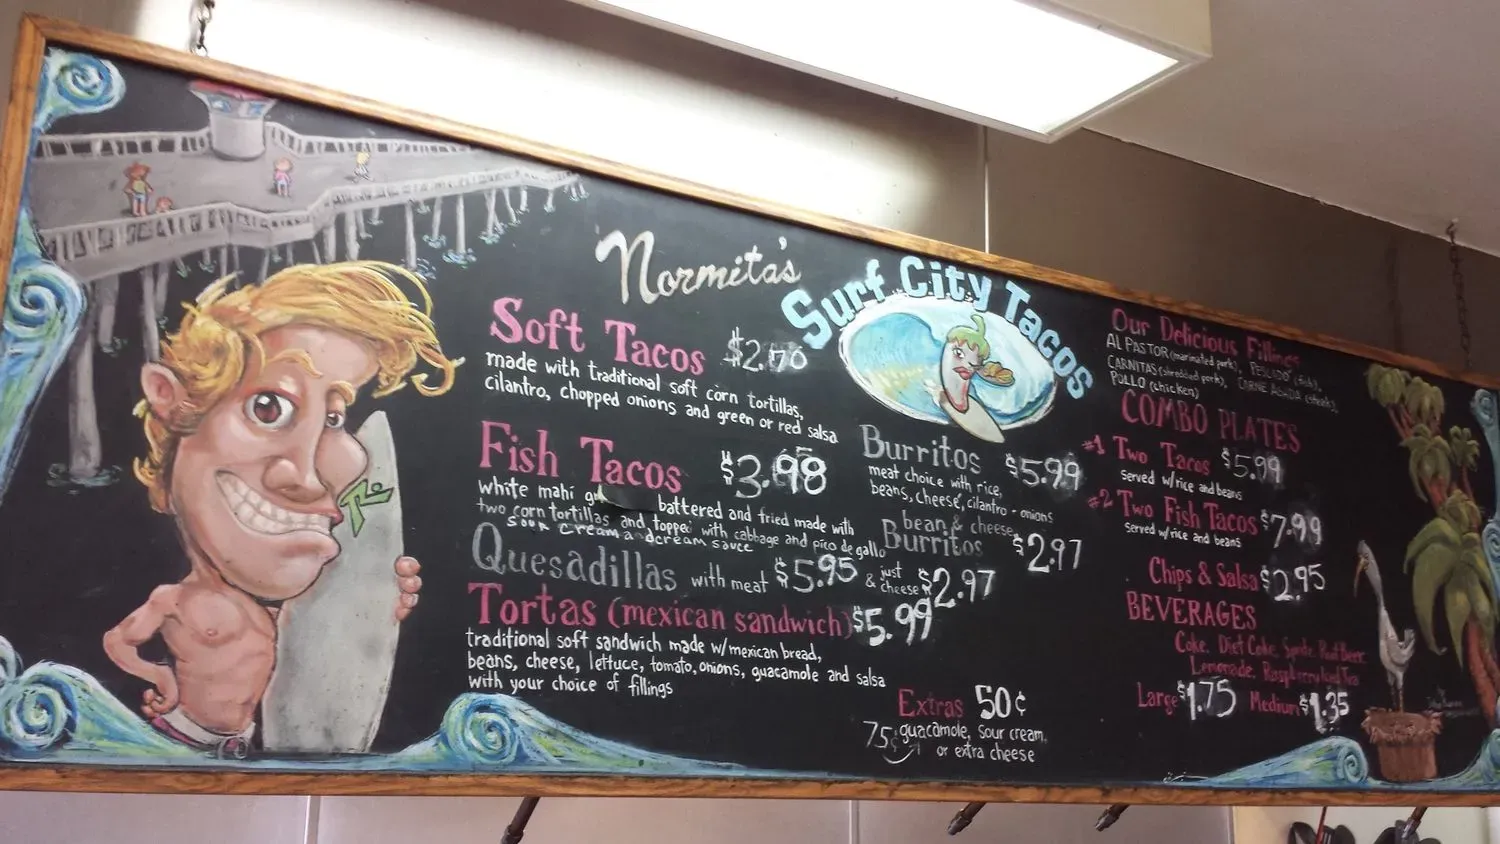 Normita's
Surf City Tacos
Soft Tacos
made with traditional soft corn tortillas,
cilantro, chopped onions and green or red salsa
Fish Tacos $3.98
white mahi battered and fried made with
two corn tortillas and topped with cabbage and pico de gallo
sour cream and cream sauce
Quesadillas with meat $5.95 & just cheese $2.97
Tortas (mexican sandwich) $5.99
traditional soft sandwich made w/mexican bread,
beans, cheese, lettuce, tomato, onions, guacamole and salsa
with your choice of fillings
Burritos $5.99
meat choice with rice,
beans, cheese, cilantro - onions
bean & cheese
Burritos $2.97
Extras 50¢
75¢ guacamole, sour cream,
or extra cheese
Our Delicious Fillings
AL PASTOR (marinated pork), PESCADO (fish),
CARNITAS (shredded pork), CARNE ASADA (steak),
POLLO (chicken)
COMBO PLATES
#1 Two Tacos $5.99
served w/rice and beans
#2 Two Fish Tacos $7.99
served w/rice and beans
Chips & Salsa $2.95
BEVERAGES
Coke, Diet Coke, Sprite, Root Beer
Lemonade, Raspberry Iced Tea
Large $1.75 Medium $1.35